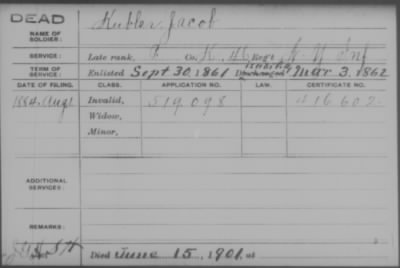 DEAD
NAME OF SOLDIER:
Kubler, Jacob
SERVICE:
Late rank, P Co. K, 46 Reg't N. Y. Inf
TERM OF SERVICE:
Enlisted Sept 30, 1861 Discharged Mar 3, 1862
DATE OF FILING. CLASS. APPLICATION NO. LAW. CERTIFICATE NO.
1884, Aug 1 Invalid, 519,098 416,602
Widow,
Minor,
ADDITIONAL SERVICES:
REMARKS:
Died June 15, 1901, at